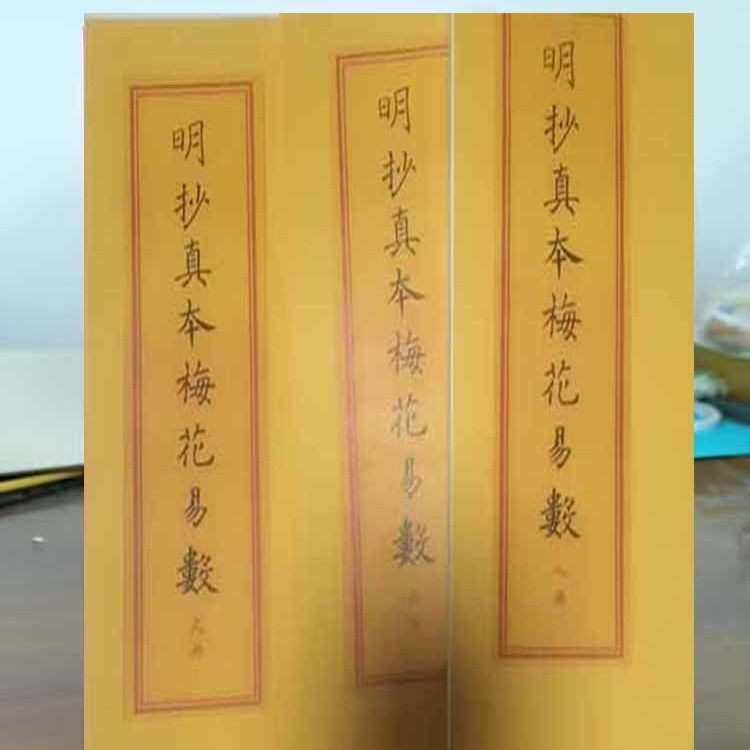 明抄真本梅花易數
天冊
明抄真本梅花易數
明抄真本梅花易數
人冊